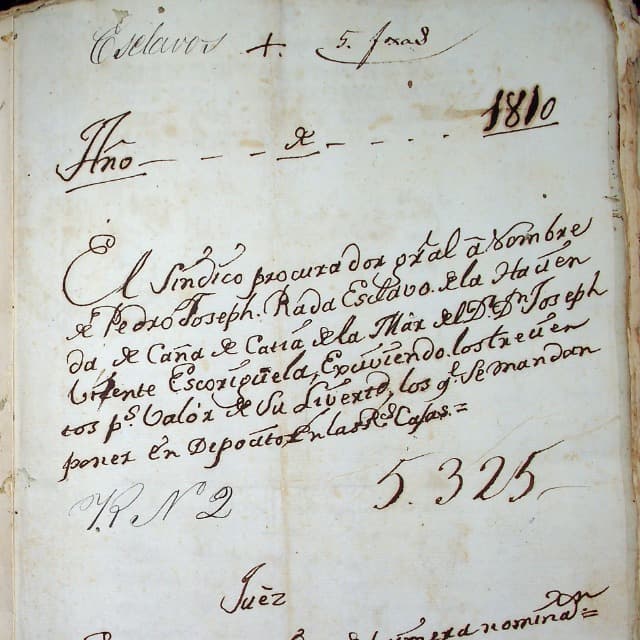 Esclavos + 5.
Año - - - de - - - 1810
El Síndico procurador grãl a Nombre
de Pedro Joseph. Rada Esclavo de la Hacien
da de Caña de Catia de la Mar del D.r D.n Joseph
Vicente Escorigüela, Exiviendo lostrecien
tos p.s Valor de Su Liverto, los q.e Se mandan
poner en Deposito En las R.s Cajas=
N.o 2
5.325
Juez
nomina=